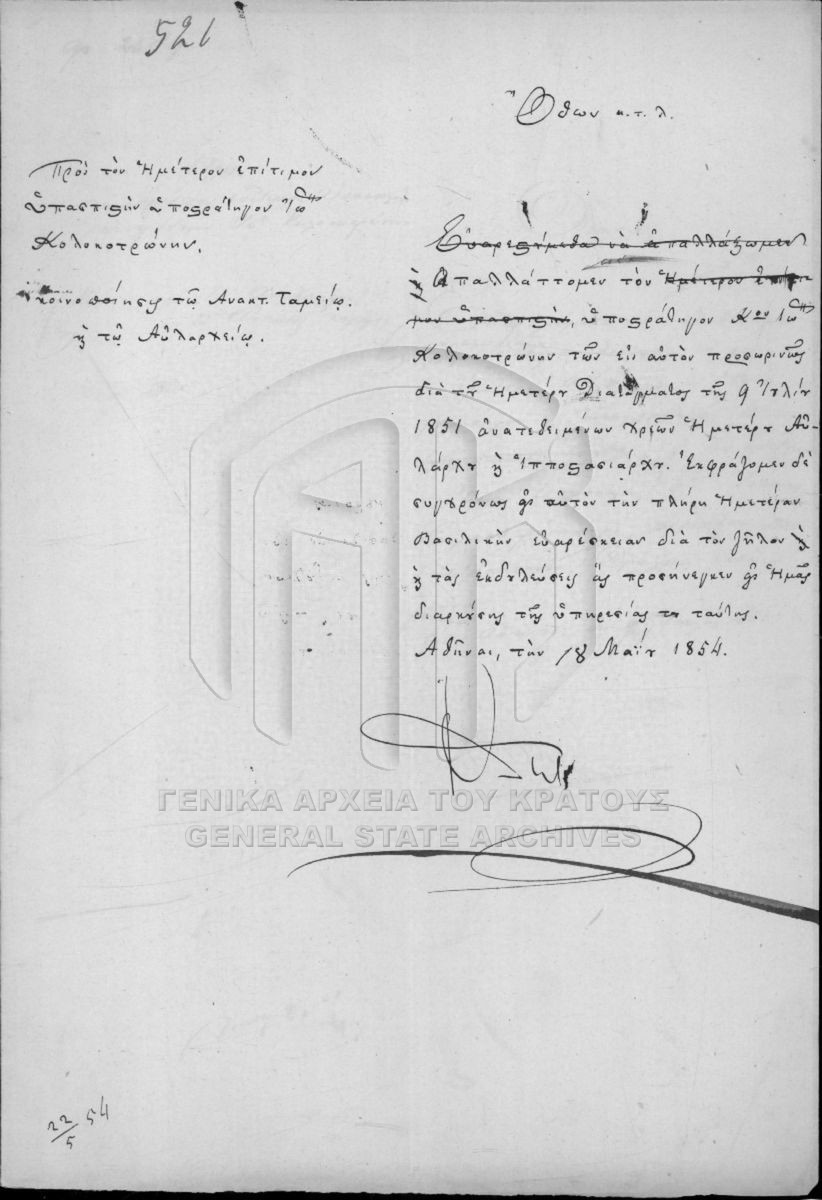 521
Ὄθων κ.τ.λ.
Πρὸς τὸν Ἡμέτερον ἐπίτιμον
ὑπασπιστὴν ὑποστράτηγον Ἰω
Κολοκοτρώνην.
κοινοποίησις τῷ Ἀνακτ. Ταμείῳ.
ϗ τῷ Αὐλαρχείῳ.
Εὐαρεστήμεθα νὰ ἀπαλλάξωμεν
Ἀπαλλάττομεν τὸν Ἡμέτερον ἐπίτι-
μον ὑπασπιστὴν, ὑποστράτηγον Κον Ἰω
Κολοκοτρώνην τῶν εἰς αὐτὸν προσωρινῶς
διὰ τοῦ Ἡμετέρου Διατάγματος τῆς 9 Ἰουλίου
1851 ἀνατεθειμένων χρεῶν Ἡμετέρου Αὐ-
λάρχου ϗ Ἱπποστασιάρχου. Ἐκφράζομεν δὲ
συγχρόνως εἰς αὐτὸν τὴν πλήρη Ἡμετέραν
Βασιλικὴν εὐαρέσκειαν διὰ τὸν ζῆλον ϗ
ϗ τὰς ἐκδουλεύσεις ἃς προσήνεγκεν εἰς Ἡμᾶς
διαρκούσης τῆς ὑπηρεσίας του ταύτης.
Ἀθῆναι, τὴν 18 Μαΐου 1854.
ΓΕΝΙΚΑ ΑΡΧΕΙΑ ΤΟΥ ΚΡΑΤΟΥΣ
GENERAL STATE ARCHIVES
22/5 54